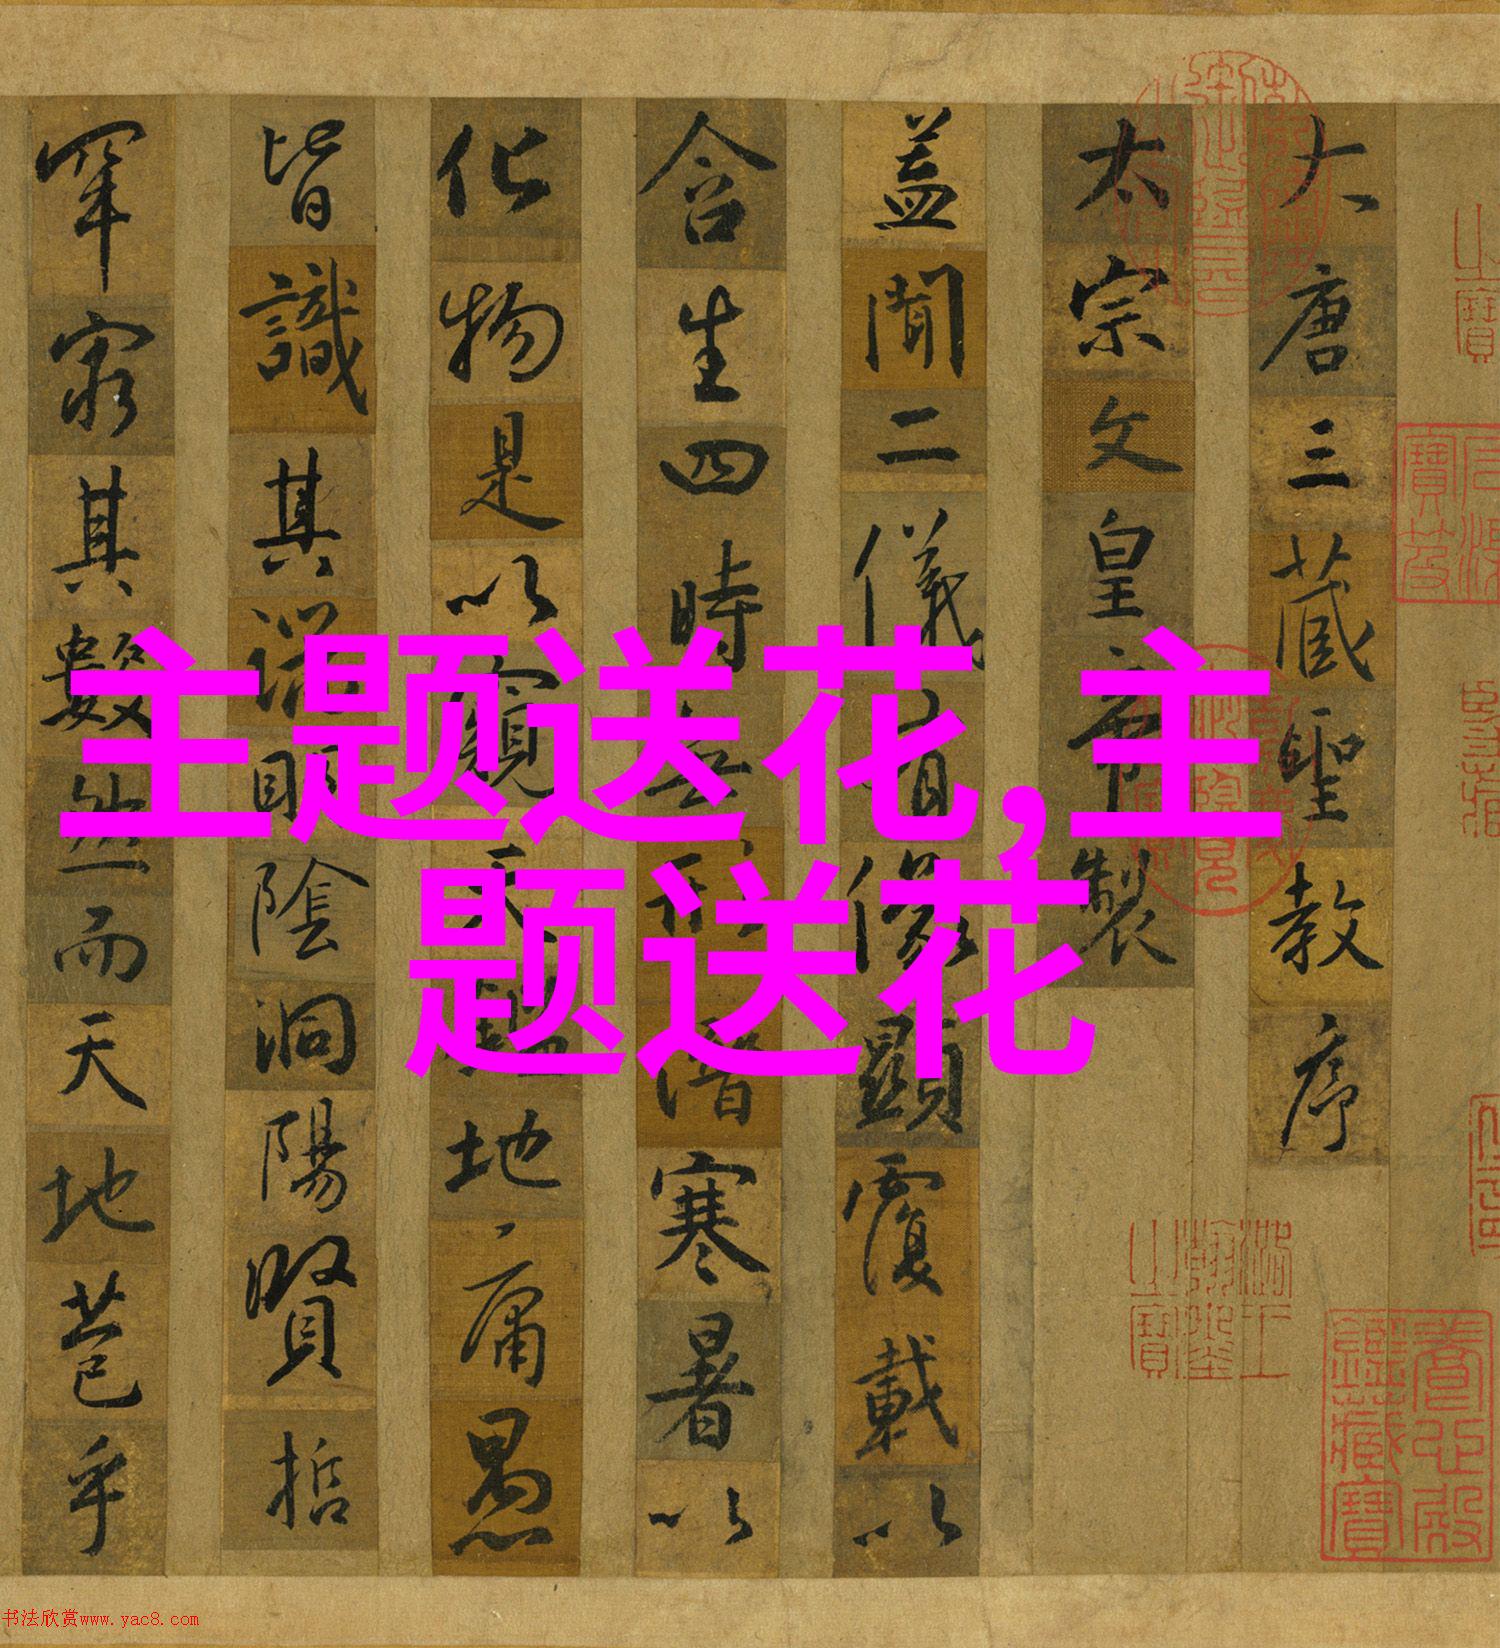 大唐三藏聖教序
太宗文皇帝製
蓋聞二儀有像顯覆載以
含生四時無形潛寒暑以
化物是以窺天鑑地庸愚
皆識其端明陰洞陽賢哲
罕窮其數然而天地苞乎
主题送花,主
题送花
书法欣赏www.yac8.com